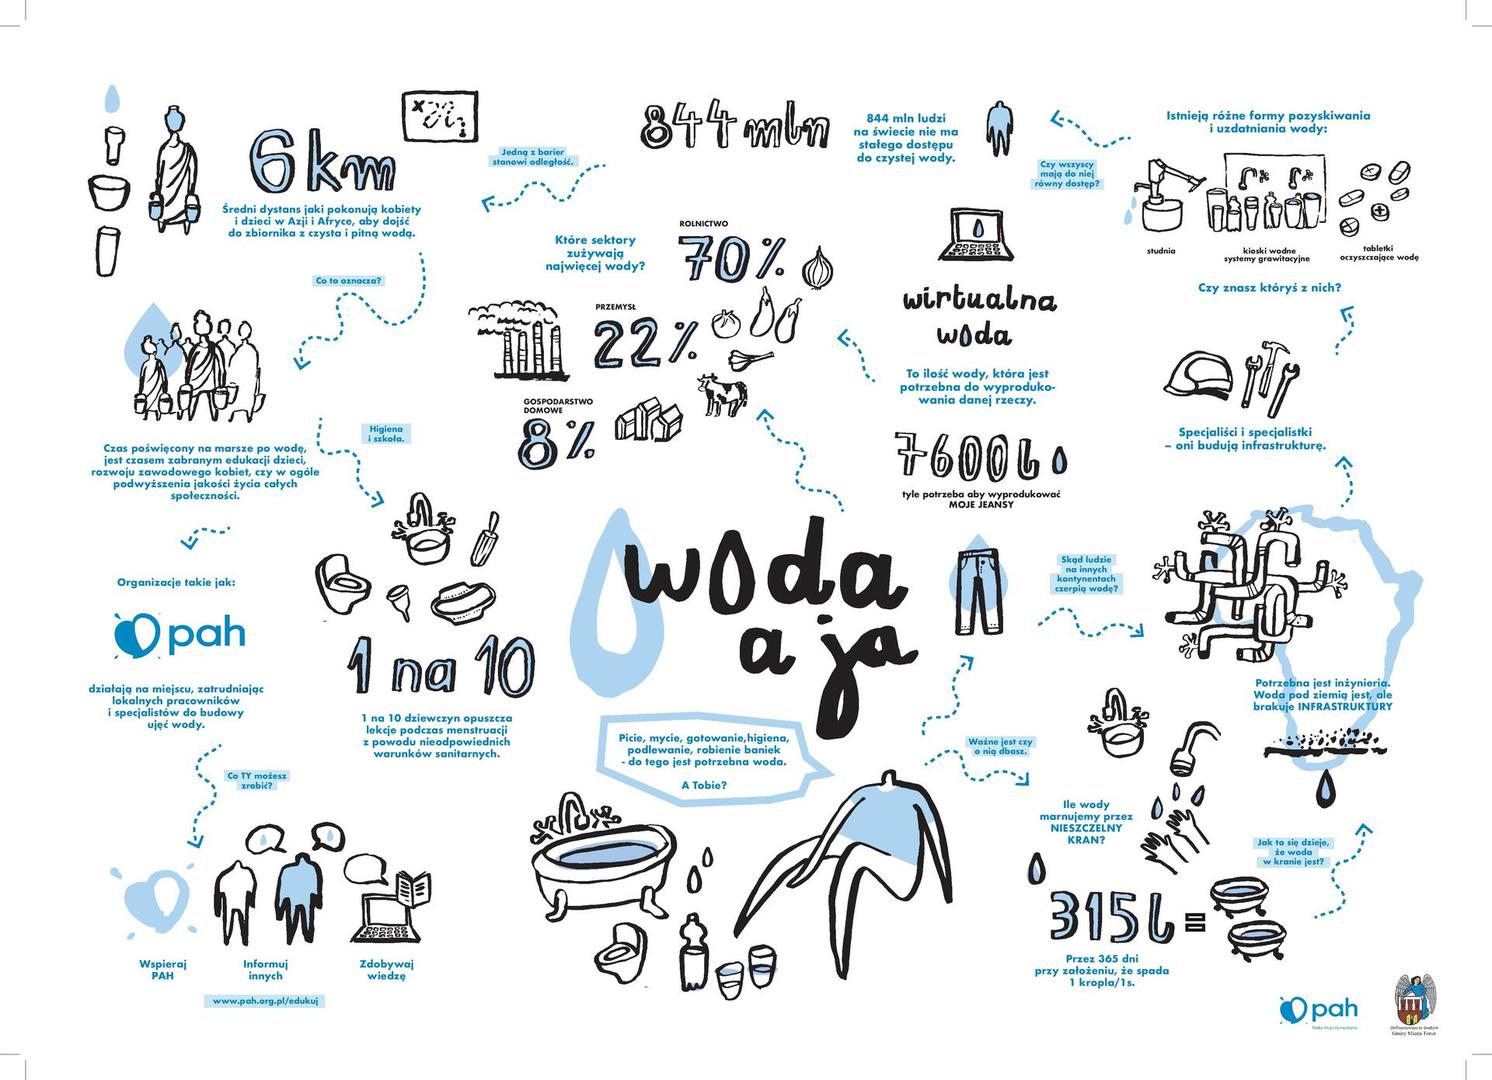 6 km
Średni dystans jaki pokonują kobiety
i dzieci w Azji i Afryce, aby dojść
do zbiornika z czysta i pitną wodą.
Jedną z barier
stanowi odległość.
844 mln
844 mln ludzi
na świecie nie ma
stałego dostępu
do czystej wody.
Czy wszyscy
mają do niej
równy dostęp?
Istnieją różne formy pozyskiwania
i uzdatniania wody:
studnia
kioski wodne
systemy grawitacyjne
tabletki
oczyszczające wodę
Czy znasz któryś z nich?
Co to oznacza?
Które sektory
zużywają
najwięcej wody?
ROLNICTWO
70%
PRZEMYSŁ
22%
GOSPODARSTWO
DOMOWE
8%
wirtualna
woda
To ilość wody, która jest
potrzebna do wyproduko-
wania danej rzeczy.
7600 l
tyle potrzeba aby wyprodukować
MOJE JEANSY
Specjaliści i specjalistki
– oni budują infrastrukturę.
Czas poświęcony na marsze po wodę,
jest czasem zabranym edukacji dzieci,
rozwoju zawodowego kobiet, czy w ogóle
podwyższenia jakości życia całych
społeczności.
Higiena
i szkoła.
Organizacje takie jak:
pah
działają na miejscu, zatrudniając
lokalnych pracowników
i specjalistów do budowy
ujęć wody.
1 na 10
1 na 10 dziewczyn opuszcza
lekcje podczas menstruacji
z powodu nieodpowiednich
warunków sanitarnych.
woda
a ja
Picie, mycie, gotowanie,higiena,
podlewanie, robienie baniek
- do tego jest potrzebna woda.
A Tobie?
Skąd ludzie
na innych
kontynentach
czerpią wodę?
Potrzebna jest inżynieria.
Woda pod ziemią jest, ale
brakuje INFRASTRUKTURY
Ważne jest czy
o nią dbasz.
Ile wody
marnujemy przez
NIESZCZELNY
KRAN?
Jak to się dzieje,
że woda
w kranie jest?
315 l =
Przez 365 dni
przy założeniu, że spada
1 kropla/1s.
Co TY możesz
zrobić?
Wspieraj
PAH
Informuj
innych
Zdobywaj
wiedzę
www.pah.org.pl/edukuj
pah
Polska Akcja Humanitarna
Dofinansowano ze środków
Gminy Miasta Toruń